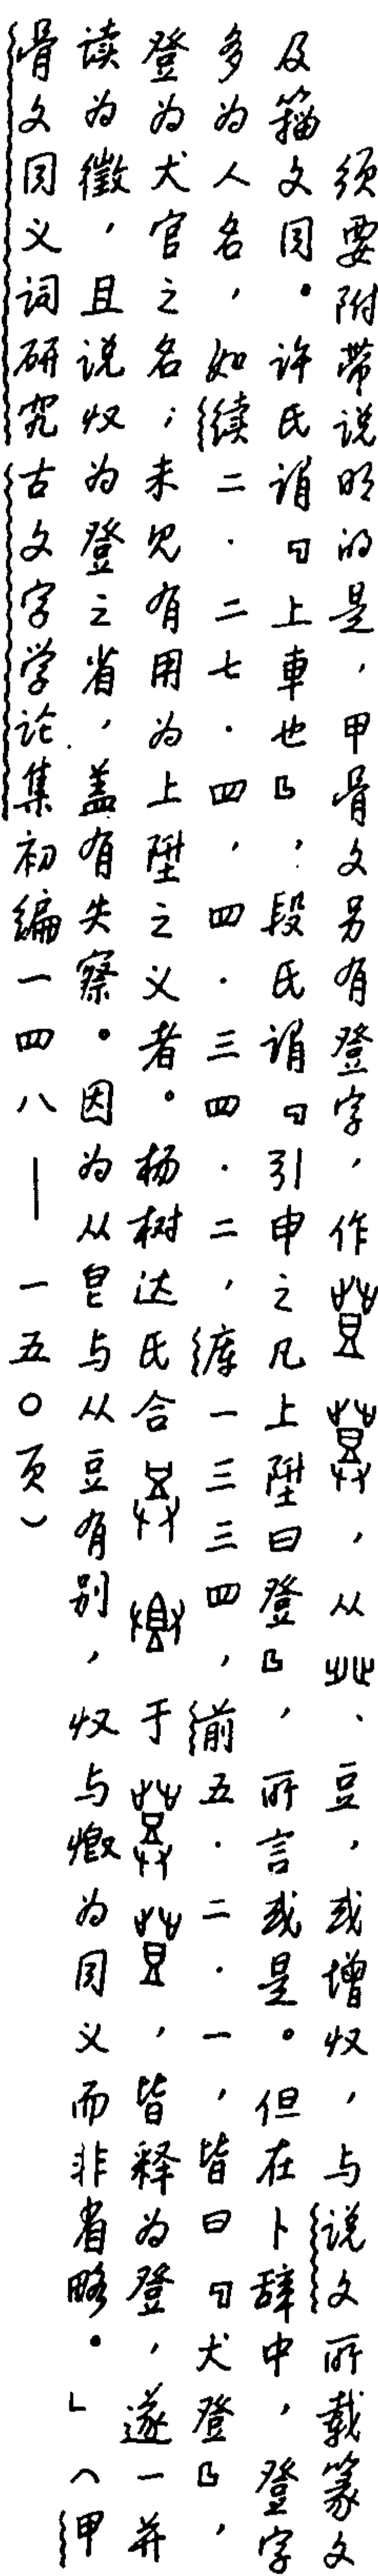 须要附带说明的是，甲骨文另有登字，作，从癶、豆，或增収，与说文所载篆文
及籀文同。许氏谓『上車也』，段氏谓『引申之凡上陞曰登』，所言或是。但在卜辞中，登字
多为人名，如续二·二七·四，四·三四·二，库一三三四，前五·二·一，皆曰『犬登』，
登为犬官之名；未见有用为上陞之义者。杨树达氏合于，皆释为登，遂一并
读为徵，且说収为登之省，盖有失察。因为从皀与从豆有别，収与为同义而非省略。」（甲
骨文同义词研究古文字学论集初编一四八——一五〇页）